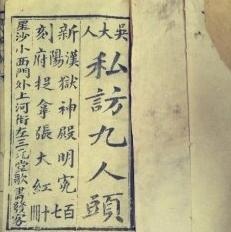 吳大人
私訪九人頭
新刻
漢陽府
獄神殿明冤
捉拿張大紅
百七
星沙小西門外上河街左三元堂歌書發客